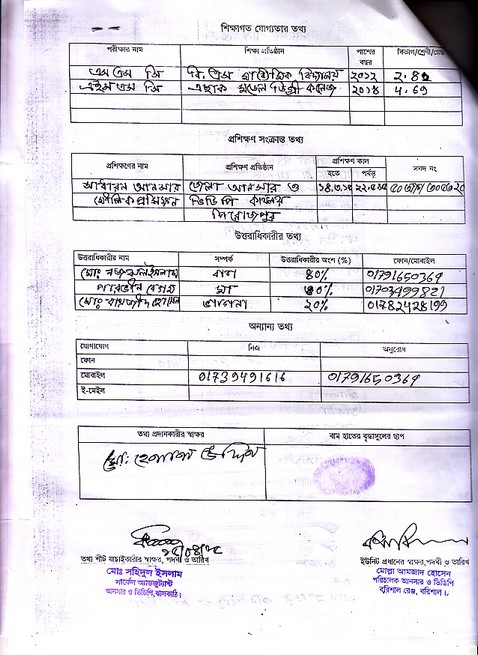 শিক্ষাগত যোগ্যতার তথ্য
পরীক্ষার নাম শিক্ষা প্রতিষ্ঠান পাশের বছর বিভাগ/শ্রেণী/গ্রেড
এস এস সি বি. এস মাধ্যমিক বিদ্যালয় ২০১২
এইস এস সি মডেল ডিগ্রী কলেজ ২০১৪ ৪.৬৭
প্রশিক্ষণ সংক্রান্ত তথ্য
প্রশিক্ষণের নাম প্রশিক্ষণ প্রতিষ্ঠান প্রশিক্ষণ কাল সনদ নং
হতে পর্যন্ত
সাধারন আনসার জেলা আনসার ও
মৌলিক প্রশিক্ষন ভিডিপি কার্যালয়
পিরোজপুর
উত্তরাধিকারীর তথ্য
উত্তরাধিকারীর নাম সম্পর্ক উত্তরাধিকারীর অংশ (%) ফোন/মোবাইল
মোঃ বাবা ৪০% 01791650369
পারভীন বেগম মা 01703499821
মোঃ ২০% 01782428199
অন্যান্য তথ্য
যোগাযোগ নিজ অনুরোধ
ফোন
মোবাইল 01739491616 01791650369
ই-মেইল
তথ্য প্রদানকারীর স্বাক্ষর বাম হাতের বৃদ্ধাঙ্গুলের ছাপ
মো: হেলাল উদ্দিন
তথ্য শীট যাচাইকারীর স্বাক্ষর, পদবী ও তারিখ
মোঃ সহিদুল ইসলাম
সার্কেল অ্যাডজুট্যান্ট
আনসার ও ভিডিপি, ঝালকাঠি।
ইউনিট প্রধানের স্বাক্ষর, পদবী ও তারিখ
মোল্লা আমজাদ হোসেন
পরিচালক আনসার ও ভিডিপি
বরিশাল রেঞ্জ, বরিশাল।